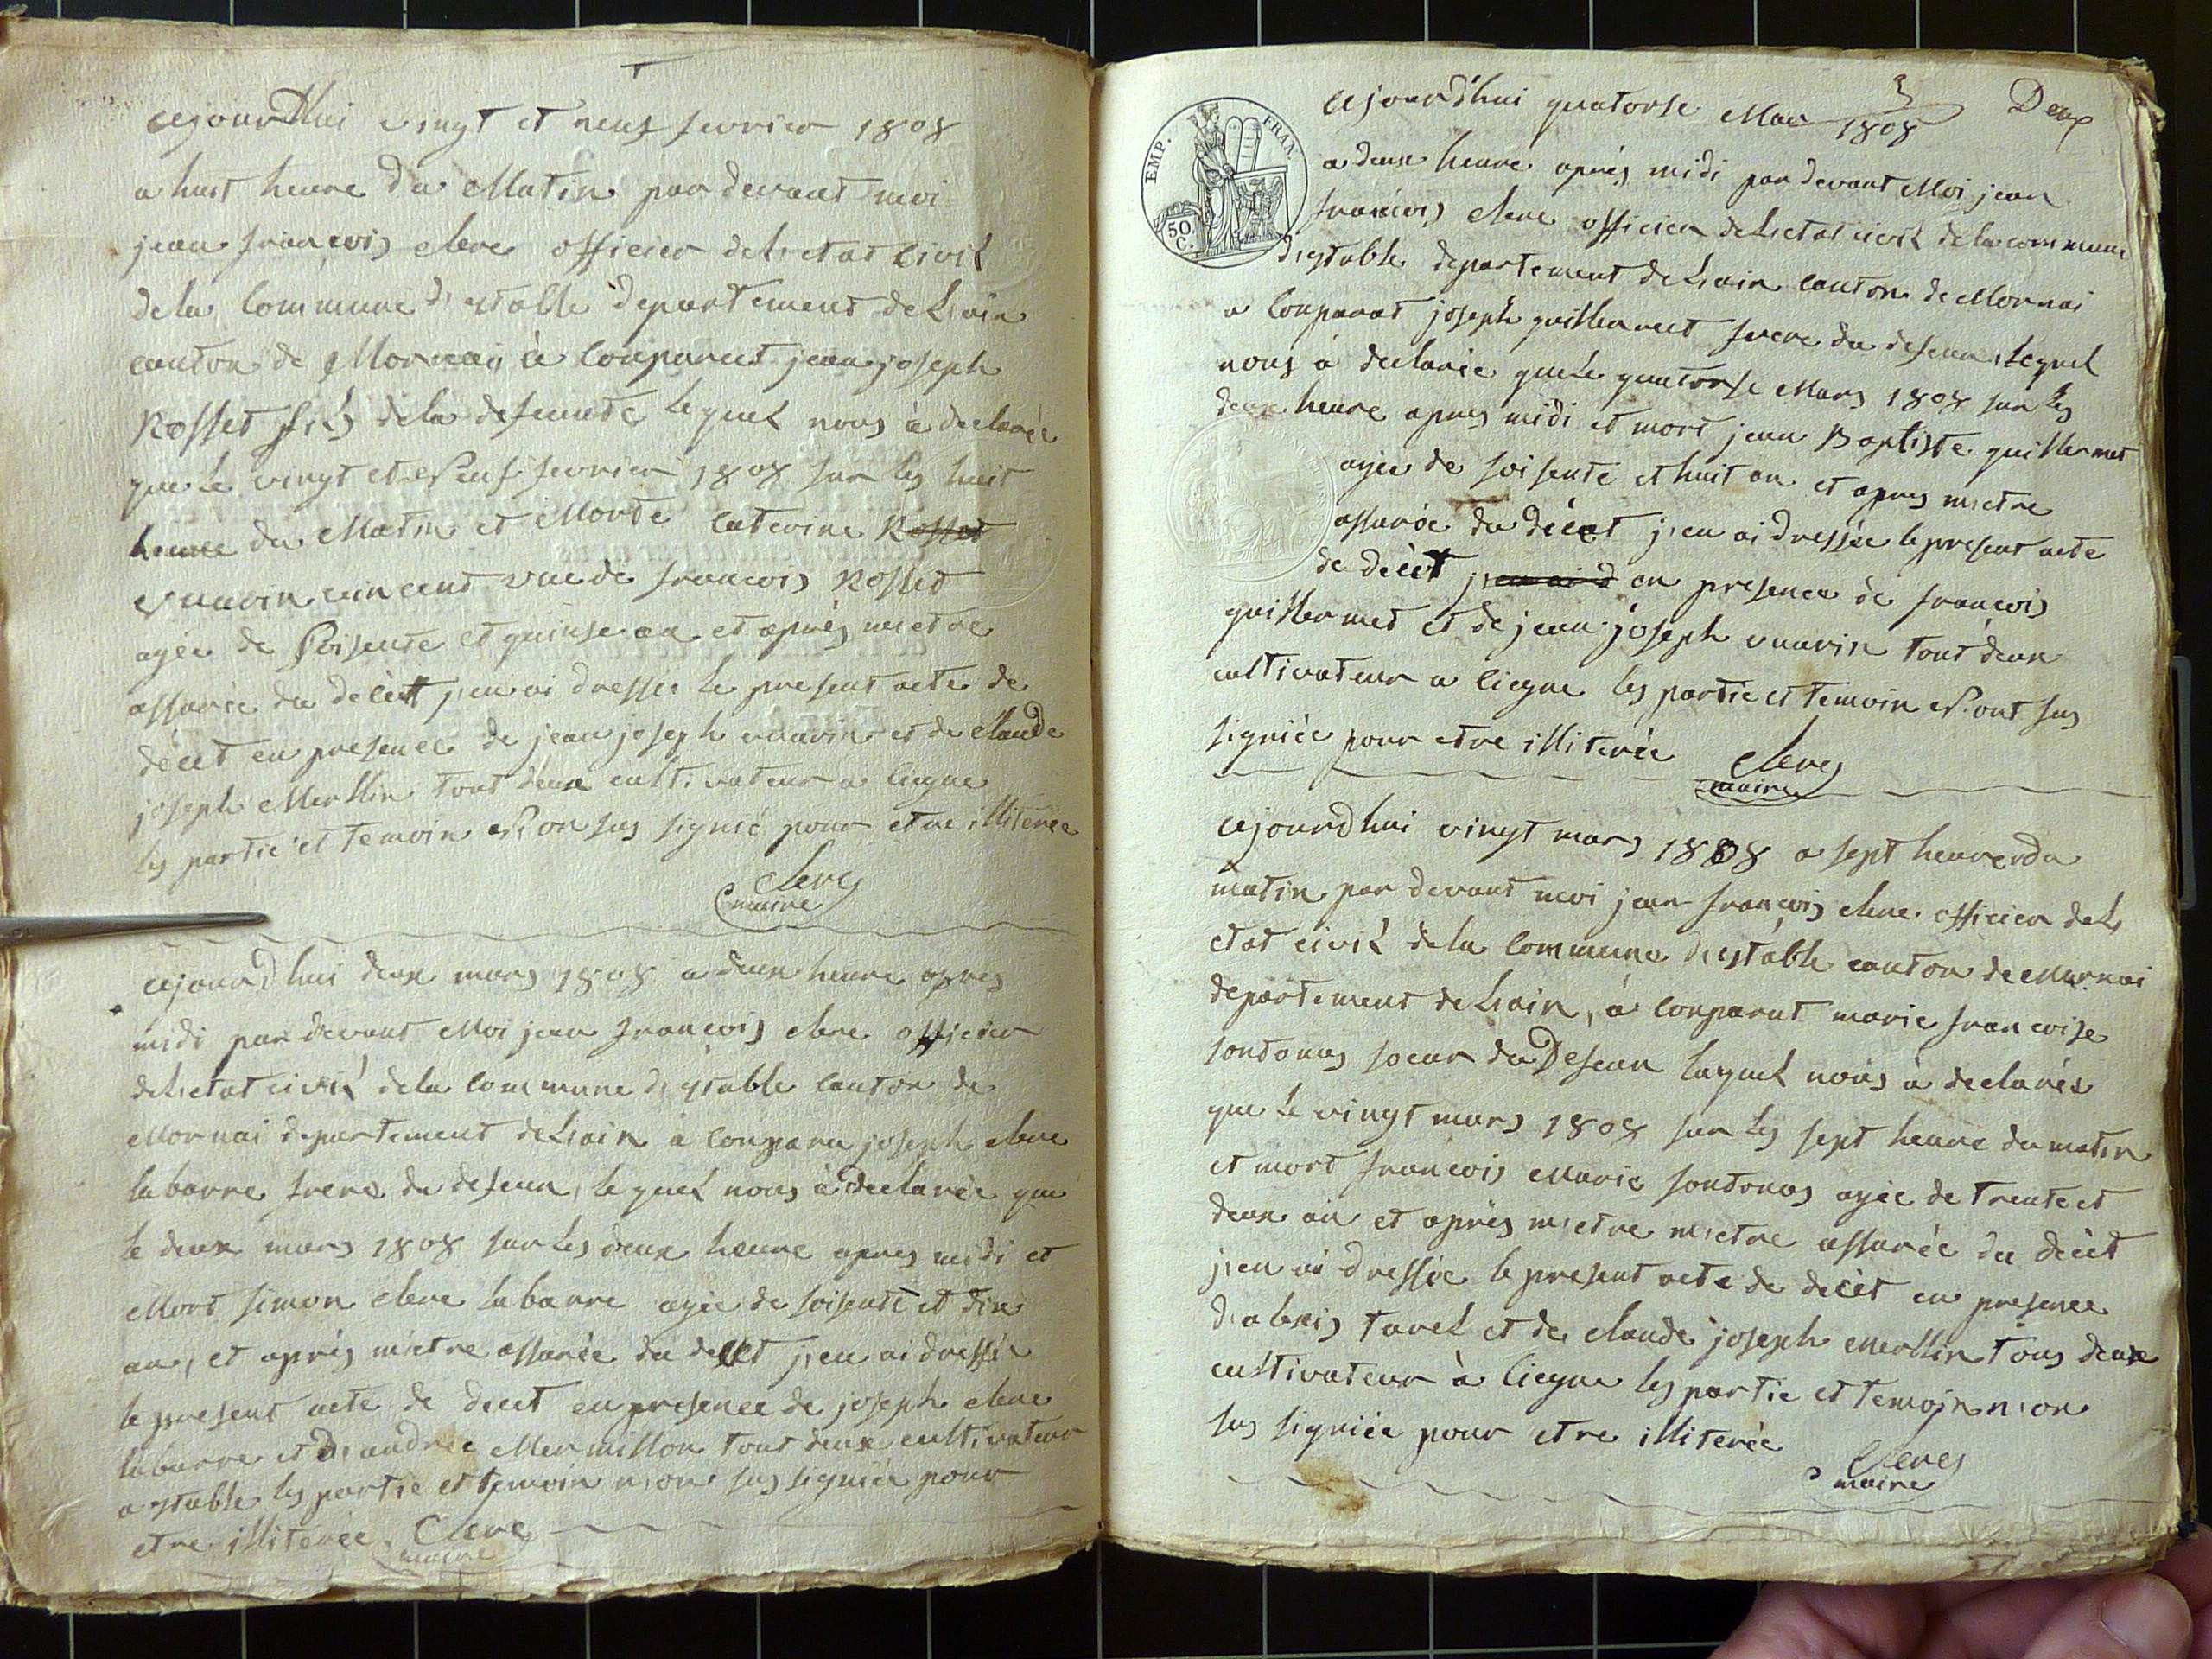 cejourdhui vingt et neuf fevrier 1808
a huit heure du Matin par devant moi
jean françois clerc officier deLietat Civil
dela Commune d'estable departement deLiain
canton de Mornay à Conparut jean joseph
Rosset fils dela defeunte lequel nous à declarée
que le vingt et Neuf fevrier 1808 sur les huit
heure du Matin et Morte Caterine Rosset
vuarin vincent vue de francois Rosset
agée de Soisente et quinse an et après metre
assurée du decèt jien ai dresser le present acte de
décet en presence de jean joseph vuarin et de Claude
joseph Merllin tout deux cultivateur a liegna
les partie et temoin Nion sus signié pour etre illiterée
Clerc
maire
cejourdhui deux mars 1808 a deux heure apres
midi par devant Moi jean françois clerc officier
deLietat civil dela Commune d'estable Canton de
Mornai departement deLiain à Conparu joseph clerc
labarre frere du defeun, le quel nous à declarée que
le deux mars 1808 sur Les deux heure apres midi et
Mort simon clerc labarre agée de soisente et dix
an, et après mietre assurée du decet jien ai dressée
le present acte de decet en presence de joseph clerc
labarre et diandrée Mermillon tout deux cultivateur
a estable les partie et temoin nion sus signiée pour
etre illiterée. Clerc
maire
3 Deux
cejourd'hui quatorse Mars 1808
EMP. FRAN.
50 C.
a deux heure après midi par devant Moi jean
françois clerc officier deLietat civil dela commune
diestable departement deLiain canton de Mornai
a Conparat joseph guillermet frere du defeun, lequel
nous à declarée queLe quatorse Mars 1808 sur les
deux heure apres midi et mort jean Baptiste guillermet
agée de soisente et huit an et apres mietre
assurée du décet jien ai dressée le present acte
de decèt jien ai d en presence de francois
guillermet et de jean joseph vuarin tout deux
cultivateur a liegna les partie et temoin Niont sus
signiée pour etre illiterée Clerc
maire
cejourdhui vingt mars 1808 a sept heure du
matin par devant moi jean françois clerc officier deLi
etat civil dela Commune diestable canton de Mornai
departement deLiain, à Conparut marie francoise
sondonas soeur du Defeun laquel nous à declarée
que le vingt mars 1808 sur les sept heure du matin
et mort francois Marie sondonas agée de trente et
deux an et après mietre mietre assurée du decèt
jien ai dressée le present acte de decèt en presence
dialexis tavel et de claude joseph merllin tous deux
cultivateur à liegna les partie et temoin nion
sus signiée pour etre illiterée
Clerc
maire